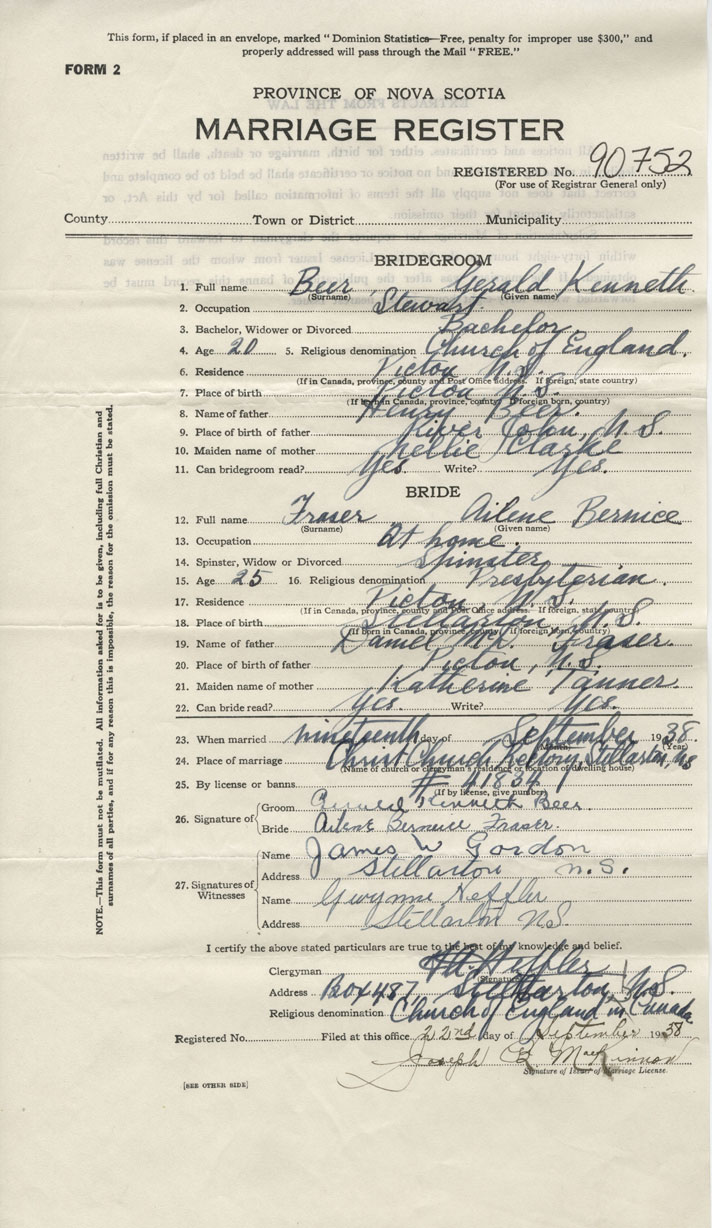 This form, if placed in an envelope, marked "Dominion Statistics—Free, penalty for improper use $300," and
properly addressed will pass through the Mail "FREE."
FORM 2
PROVINCE OF NOVA SCOTIA
MARRIAGE REGISTER
REGISTERED No. 90752
(For use of Registrar General only)
County Town or District Municipality
BRIDEGROOM
1. Full name Beer Gerald Kenneth
(Surname) (Given name)
2. Occupation Stewart.
3. Bachelor, Widower or Divorced Bachelor.
4. Age 20 5. Religious denomination Church of England.
6. Residence Pictou N.S.
(If in Canada, province, county and Post Office address. If foreign, state country)
7. Place of birth Pictou N.S.
(If born in Canada, province, county. If foreign born, country)
8. Name of father Henry Beer.
9. Place of birth of father River John, N.S.
10. Maiden name of mother Nellie Clarke
11. Can bridegroom read? Yes. Write? Yes.
BRIDE
12. Full name Fraser Ailene Bernice
(Surname) (Given name)
13. Occupation At home.
14. Spinster, Widow or Divorced Spinster
15. Age 25 16. Religious denomination Presbyterian.
17. Residence Pictou, N.S.
(If in Canada, province, county and Post Office address. If foreign, state country)
18. Place of birth Stellarton N.S.
(If born in Canada, province, county. If foreign born, country)
19. Name of father Daniel Fraser.
20. Place of birth of father Pictou, N.S.
21. Maiden name of mother Katherine Tanner.
22. Can bride read? Yes. Write? Yes.
23. When married nineteenth day of September 1938
(Month) (Year)
24. Place of marriage Christ Church Rectory, Stellarton, NS
(Name of church or clergyman's residence or location of dwelling house)
25. By license or banns # 41854
(If by license, give number)
26. Signature of Groom Kenneth Beer.
Bride Ailene Bernice Fraser.
27. Signatures of Witnesses Name James W Gordon
Address Stellarton N.S.
Name Gwynne Heffler
Address Stellarton NS.
I certify the above stated particulars are true to the best of my knowledge and belief.
Clergyman Heffler
(Signature)
Address Box 487, Stellarton, N.S.
Religious denomination Church of England in Canada
Registered No. Filed at this office 22nd day of September 1938
Joseph MacKinnon
Signature of Issuer of Marriage License.
[SEE OTHER SIDE]
NOTE.—This form must not be mutilated. All information asked for is to be given, including full Christian and
surnames of all parties, and if for any reason this is impossible, the reason for the omission must be stated.